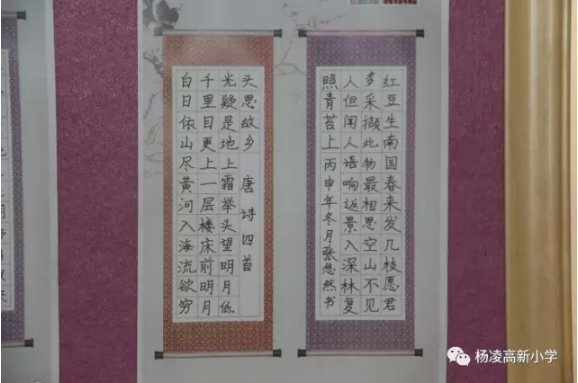 白日依山尽黄河入海流欲穷
千里目更上一层楼床前明月
光疑是地上霜举头望明月低
头思故乡 唐诗四首
红豆生南国春来发几枝愿君
多采撷此物最相思空山不见
人但闻人语响返景入深林复
照青苔上 丙申年冬月张悠然书
杨凌高新小学